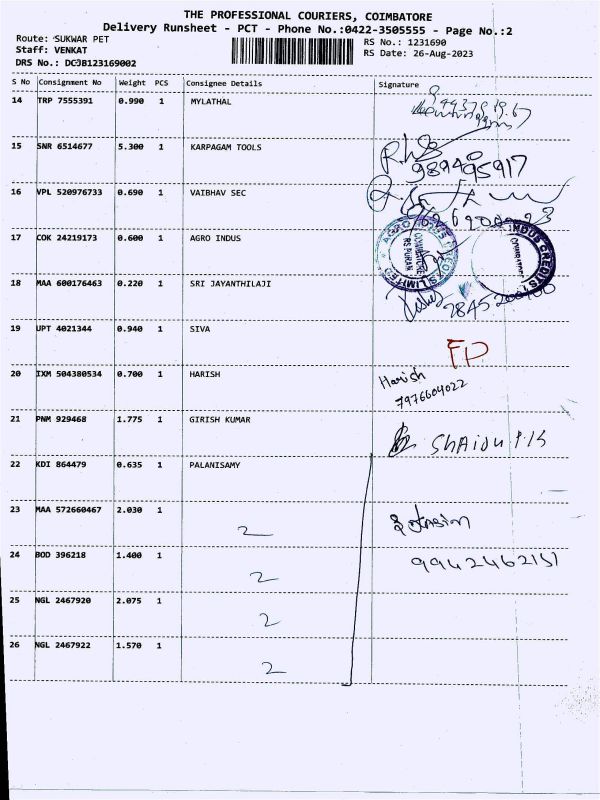 THE PROFESSIONAL COURIERS, COIMBATORE
Delivery Runsheet - PCT - Phone No.:0422-3505555 - Page No.:2
Route: SUKWAR PET
RS No.: 1231690
Staff: VENKAT
RS Date: 26-Aug-2023
DRS No.: DCJB123169002
S No Consignment No Weight PCS Consignee Details Signature
14 TRP 7555391 0.990 1 MYLATHAL
15 SNR 6514677 5.300 1 KARPAGAM TOOLS
989495917
16 VPL 520976733 0.690 1 VAIBHAV SEC
17 COK 24219173 0.600 1 AGRO INDUS
18 MAA 600176463 0.220 1 SRI JAYANTHILAJI
19 UPT 4021344 0.940 1 SIVA
FP
20 IXM 504380534 0.700 1 HARISH Harish
7976604022
21 PNM 929468 1.775 1 GIRISH KUMAR
22 KDI 864479 0.635 1 PALANISAMY
23 MAA 572660467 2.030 1
2
24 BOD 396218 1.400 1 9942462151
2
25 NGL 2467920 2.075 1
2
26 NGL 2467922 1.570 1
2